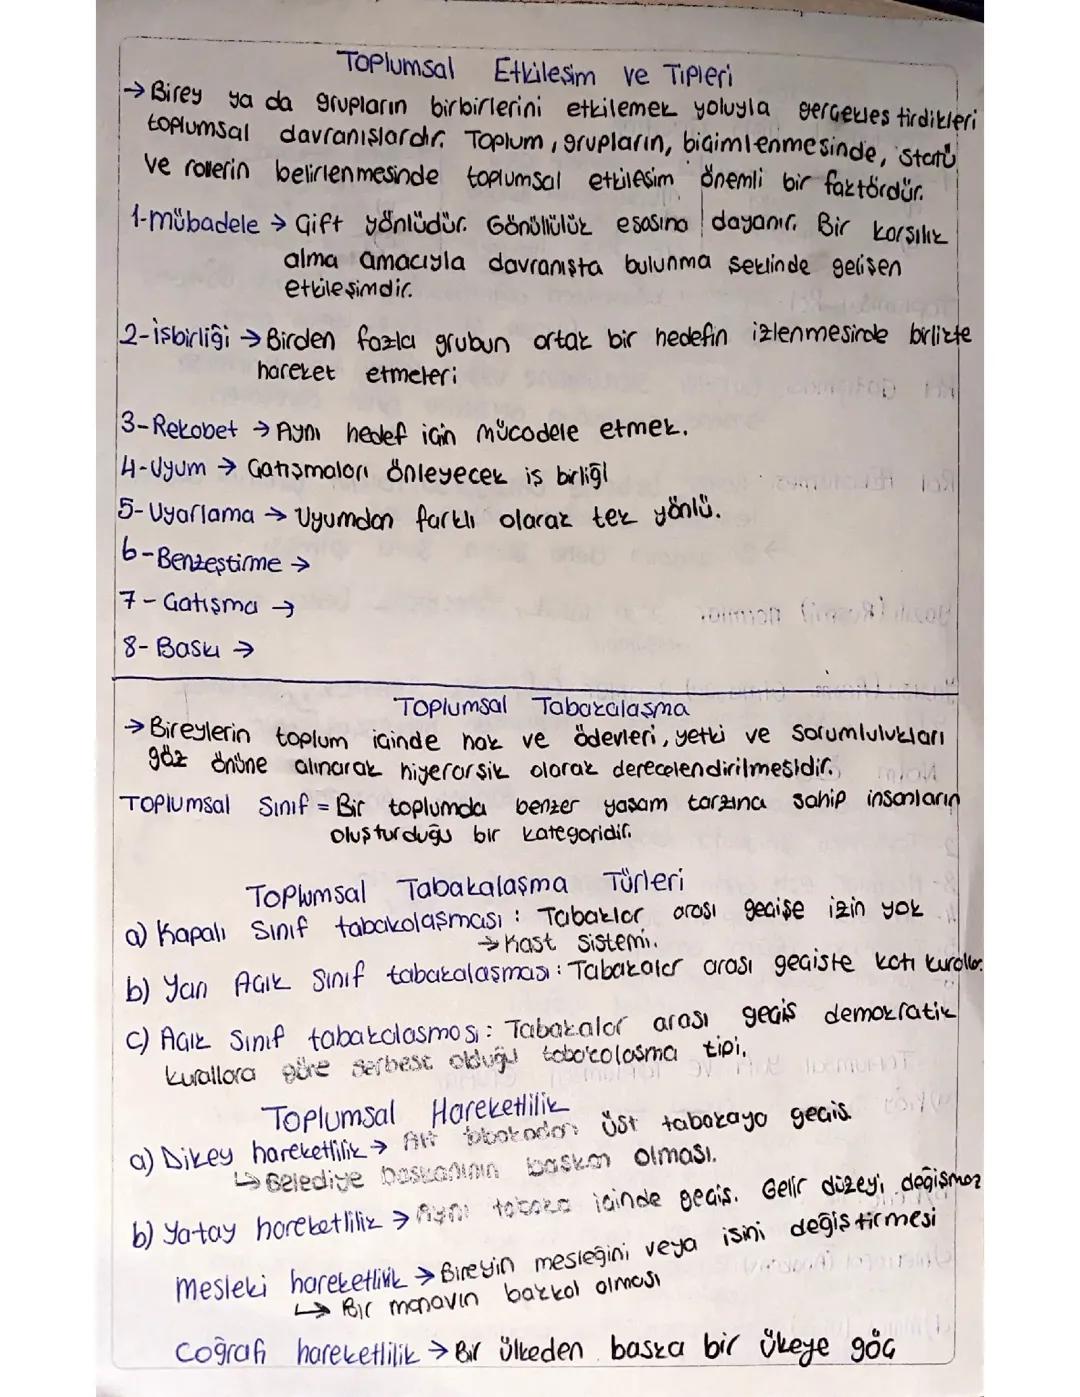 Toplumsal Etkileşim ve Tipleri
→ Birey ya da grupların birbirlerini etkilemek yoluyla gerçekleştirdikleri
toplumsal davranışlardır. Toplum, grupların, biçimlenmesinde, statü
ve rollerin belirlenmesinde toplumsal etkileşim önemli bir faktördür.
1-mübadele → Çift yönlüdür. Gönüllülük esasına dayanır. Bir karşılık
alma amacıyla davranışta bulunma şeklinde gelişen
etkileşimdir.
2-işbirliği → Birden fazla grubun ortak bir hedefin izlenmesinde birlikte
hareket etmeleri
3-Rekabet → Aynı hedef için mücadele etmek.
4-Uyum → Çatışmaları önleyecek iş birliği
5-Uyarlama → Uyumdan farklı olarak tek yönlü.
6-Benzeştirme →
7-Çatışma →
8-Baskı →
Toplumsal Tabakalaşma
→ Bireylerin toplum içinde hak ve ödevleri, yetki ve sorumlulukları
göz önüne alınarak hiyerarşik olarak derecelendirilmesidir.
Toplumsal Sınıf = Bir toplumda benzer yaşam tarzına sahip insanların
oluşturduğu bir kategoridir.
Toplumsal Tabakalaşma Türleri
a) Kapalı Sınıf tabakalaşması: Tabaklar arası geçişe izin yok
→ Kast Sistemi.
b) Yarı Açık Sınıf tabakalaşması: Tabakalar arası geçişte katı kurallar.
c) Açık Sınıf tabakalaşması: Tabakalar arası geçiş demokratik
kurallara göre serbest olduğu tabakalaşma tipi.
Toplumsal Hareketlilik
a) Dikey hareketlilik → Alt tabakadan üst tabakaya geçiş.
↳ Belediye başkanının baskan olması.
b) Yatay hareketlilik → Aynı tabaka içinde geçiş. Gelir düzeyi değişmez
Mesleki hareketlilik → Bireyin mesleğini veya işini değiştirmesi
↳ Bir manavın bakkal olması
Coğrafi hareketlilik → Bir ülkeden başka bir ükeye göç